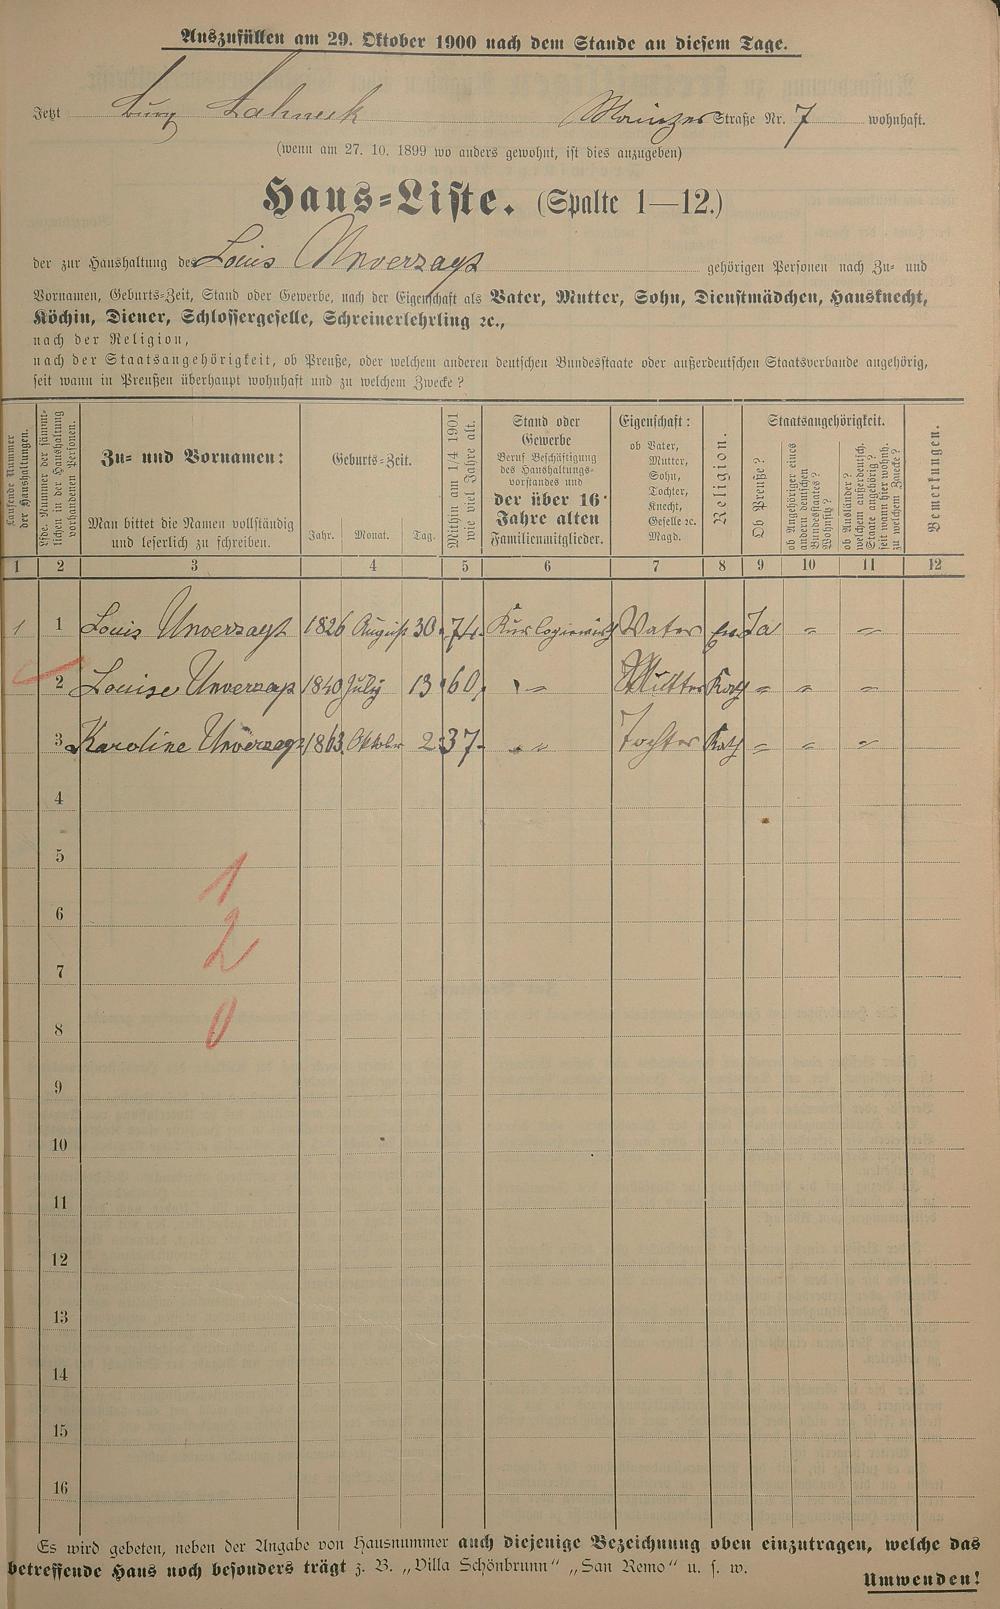 Auszufüllen am 29. Oktober 1900 nach dem Stande an diesem Tage.
Jetzt Burg Lahneck Mainzer Straße Nr. 7 wohnhaft.
(wenn am 27. 10. 1899 wo anders gewohnt, ist dies anzugeben)
Haus-Liste. (Spalte 1—12.)
der zur Haushaltung des Louis Unverzagt gehörigen Personen nach Zu- und
Vornamen, Geburts-Zeit, Stand oder Gewerbe, nach der Eigenschaft als Vater, Mutter, Sohn, Dienstmädchen, Hausknecht,
Köchin, Diener, Schlossergeselle, Schreinerlehrling ꝛc.,
nach der Religion,
nach der Staatsangehörigkeit, ob Preuße, oder welchem anderen deutschen Bundesstaate oder außerdeutschen Staatsverbande angehörig,
seit wann in Preußen überhaupt wohnhaft und zu welchem Zwecke?
Laufende Nummer
der Haushaltungen.
Lfde. Nummer der sämmt-
lichen in der Haushaltung
vorhandenen Personen.
Zu- und Vornamen:
Man bittet die Namen vollständig
und leserlich zu schreiben.
Geburts-Zeit.
Jahr. Monat. Tag.
Mithin am 1/4 1901
wie viel Jahre alt.
Stand oder
Gewerbe
Beruf Beschäftigung
des Haushaltungs-
vorstandes und
der über 16
Jahre alten
Familienmitglieder.
Eigenschaft:
ob Vater,
Mutter,
Sohn,
Tochter,
Knecht,
Geselle ꝛc.
Magd.
Religion.
Staatsangehörigkeit.
Ob Preuße?
ob Angehöriger eines
andern deutschen
Bundesstaates?
Wohnsitz?
ob Ausländer?
welchem außerdeutsch.
Staate angehörig?
seit wann hier wohnh.
zu welchem Zwecke?
Bemerkungen.
1 2 3 4 5 6 7 8 9 10 11 12
1 1 Louis Unverzagt 1826 August 30. 74. Kurlogierwirth Vater Ev. Ja " "
2 Louise Unverzagt 1840 July 13. 60. " Mutter Kath " " "
3 Karoline Unverzagt 1863 Oktober 2. 37. " Tochter Kath " " "
4
5
1
6
2
7
0
8
9
10
11
12
13
14
15
16
Es wird gebeten, neben der Angabe von Hausnummer auch diejenige Bezeichnung oben einzutragen, welche das
betreffende Haus noch besonders trägt z. B. „Villa Schönbrunn“ „San Remo“ u. s. w.
Umwenden!